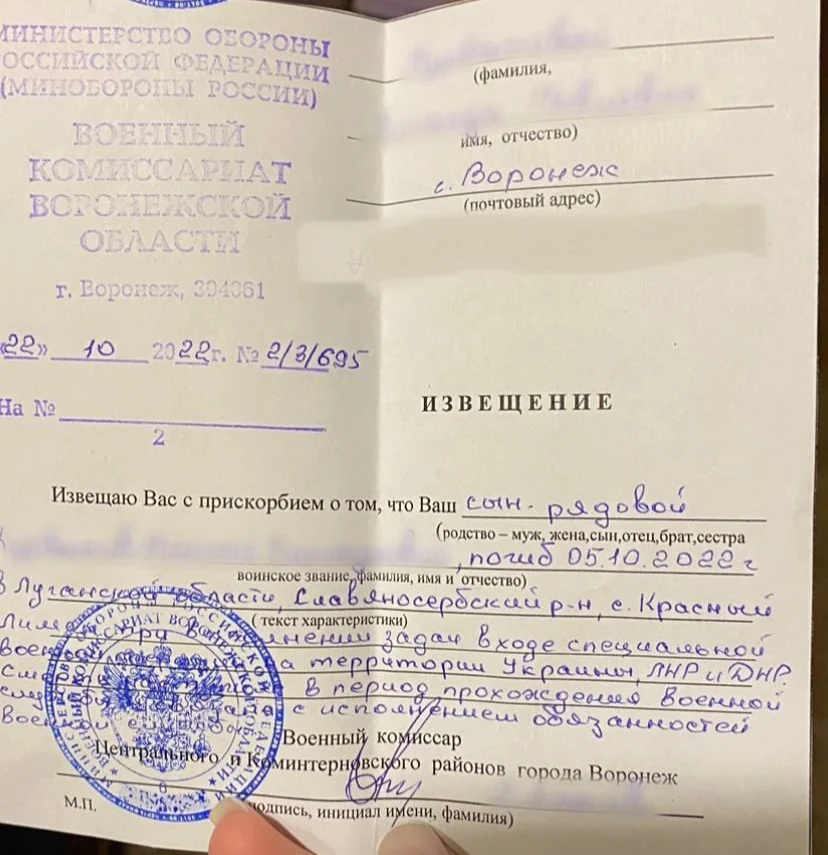 МИНИСТЕРСТВО ОБОРОНЫ
РОССИЙСКОЙ ФЕДЕРАЦИИ
(МИНОБОРОНЫ РОССИИ)
ВОЕННЫЙ
КОМИССАРИАТ
ВОРОНЕЖСКОЙ
ОБЛАСТИ
г. Воронеж, 394061
«22» 10 2022г. № 2/3/695
На №
2
(фамилия,
имя, отчество)
г. Воронеж
(почтовый адрес)
ИЗВЕЩЕНИЕ
Извещаю Вас с прискорбием о том, что Ваш сын - рядовой
(родство – муж, жена,сын,отец,брат,сестра
, погиб 05.10.2022 г
воинское звание, фамилия, имя и отчество)
в Луганской области, Славяносербский р-н, с. Красный
( текст характеристики)
Лиман при задач в ходе специальной
на территории Украины, ЛНР и ДНР.
в период прохождения военной
с исполнением обязанностей
Военный комиссар
Центрального и Коминтерновского районов города Воронеж
М.П.
подпись, инициал имени, фамилия)